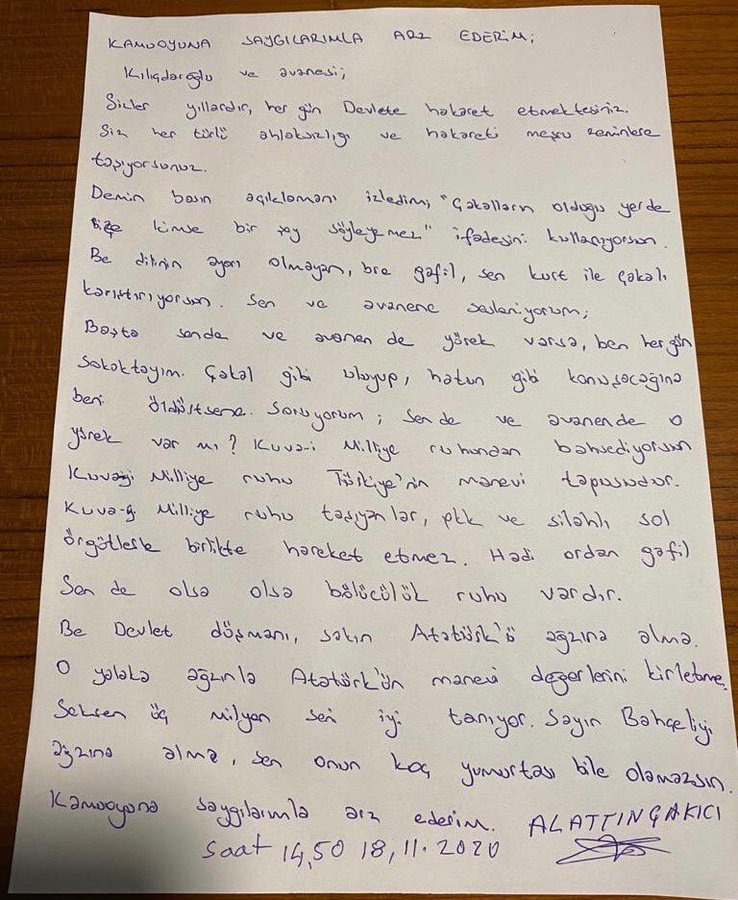 KAMUOYUNA SAYGILARIMLA ARZ EDERİM;
Kılıçdaroğlu ve avanesi;
Sizler yıllardır, her gün Devlete hakaret etmektesiniz.
Siz her türlü ahlaksızlığı ve hakareti meşru zeminlere
taşıyorsunuz.
Demin basın açıklamanı izledim; "Çakalların olduğu yerde
bize kimse bir şey söyleyemez" ifadesini kullanıyorsun.
Be dilinin ayarı olmayan, bre gafil, sen kurt ile çakalı
karıştırıyorsun. Sen ve avanene sesleniyorum;
Başta sende ve avanen de yürek varsa, ben her gün
sokaktayım. Çakal gibi uluyup, hatun gibi konuşacağına
beni öldürtsene. Soruyorum; sen de ve avanende o
yürek var mı? Kuva-i Milliye ruhundan bahsediyorsun
Kuvayi Milliye ruhu Türkiye'nin manevi tapusudur.
Kuva-yi Milliye ruhu taşıyanlar, pkk ve silahlı sol
örgütlerle birlikte hareket etmez. Hadi ordan gafil
Sen de olsa olsa bölücülük ruhu vardır.
Be Devlet düşmanı, sakın Atatürk'ü ağzına alma.
O yalaka ağzınla Atatürk'ün manevi değerlerini kirletme.
Seksen üç milyon seni iyi tanıyor. Sayın Bahçeliyi
ağzına alma, sen onun koç yumurtası bile olamazsın.
Kamuoyuna saygılarımla arz ederim. ALATTİN ÇAKICI
Saat 14,50 18,11.2020